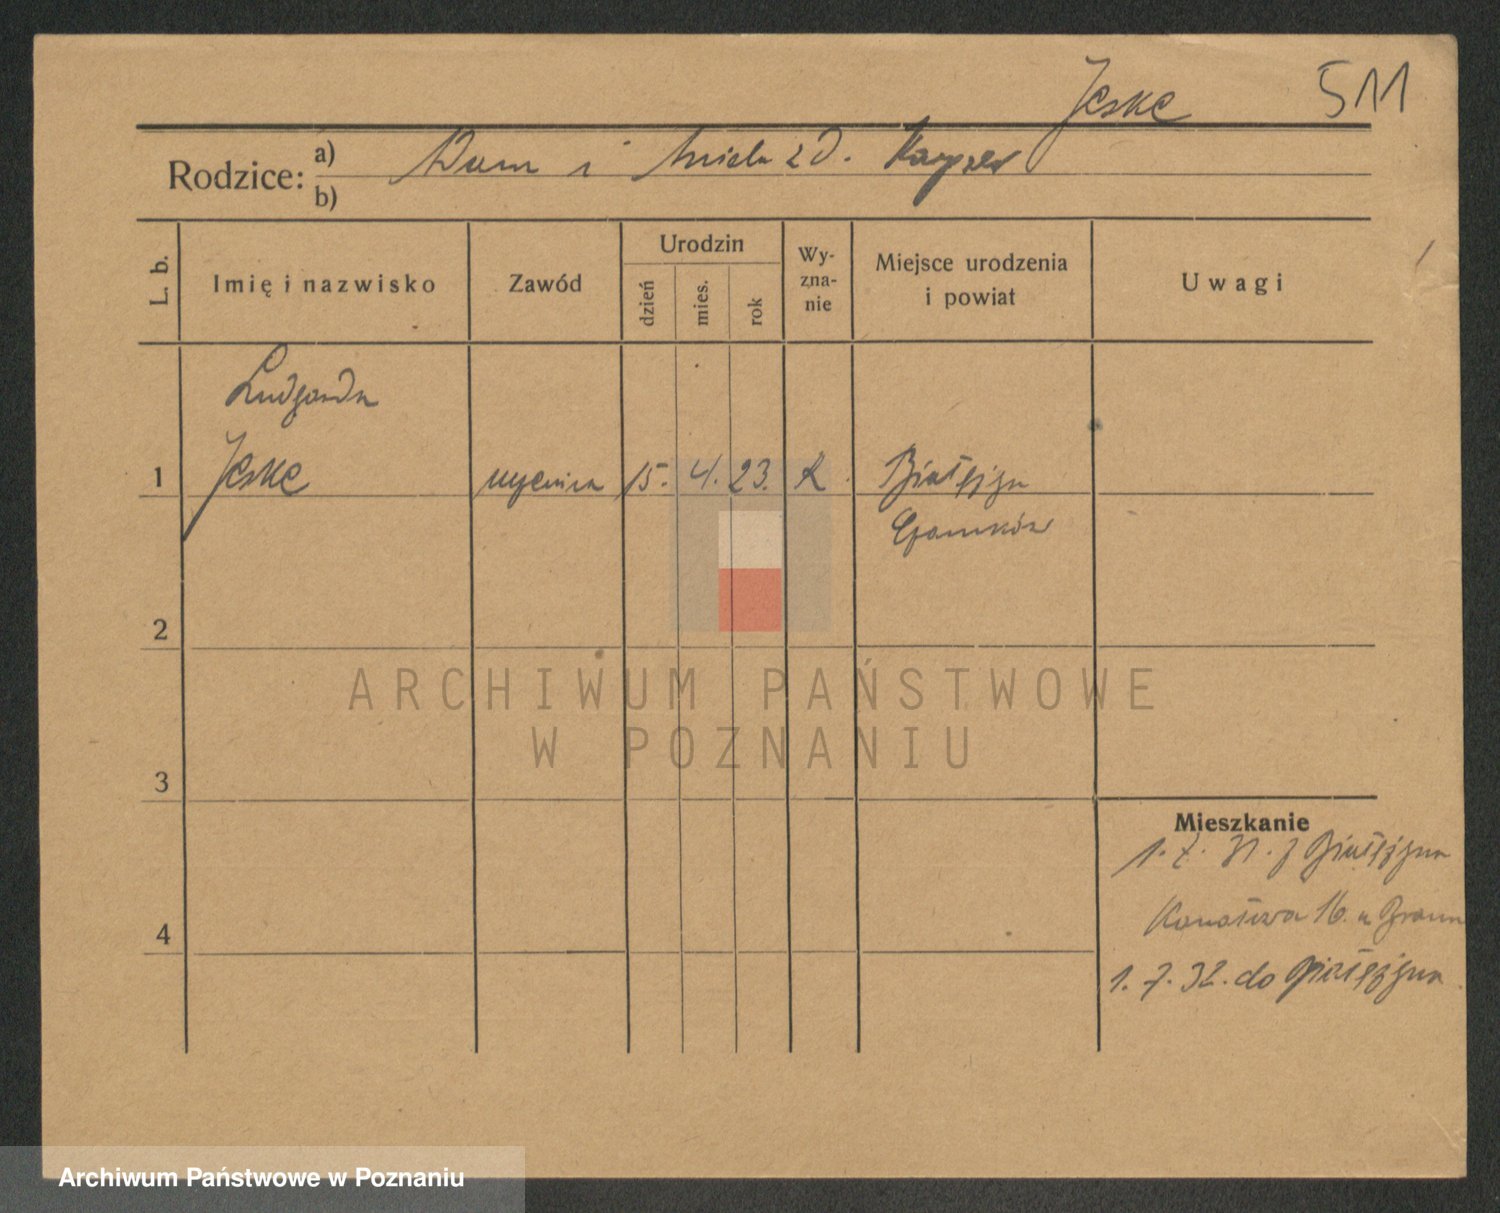 Jeske
511
Rodzice: a) Adam i Aniela zD. Kacper
b)
L. b.
Imię i nazwisko
Zawód
Urodzin
dzień
mies.
rok
Wy-
zna-
nie
Miejsce urodzenia
i powiat
Uwagi
Ludgarda
1 Jeske uczenica 15. 4. 23. R. Białężyn
Czarnków
2
3
4
Mieszkanie
1. 7. 31. z Białężyna
16. u Braun
1. 7. 32. do Białężyna
ARCHIWUM PAŃSTWOWE
W POZNANIU
Archiwum Państwowe w Poznaniu